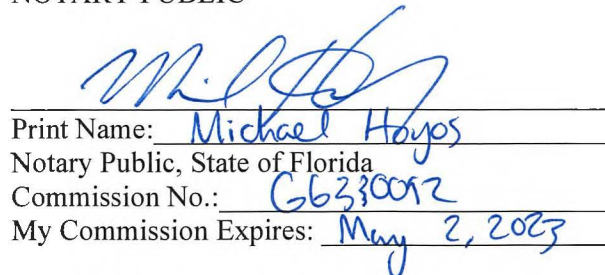 NOTARY PUBLIC
Print Name: Michael Hoyos
Notary Public, State of Florida
Commission No.: GG330092
My Commission Expires: May 2, 2023